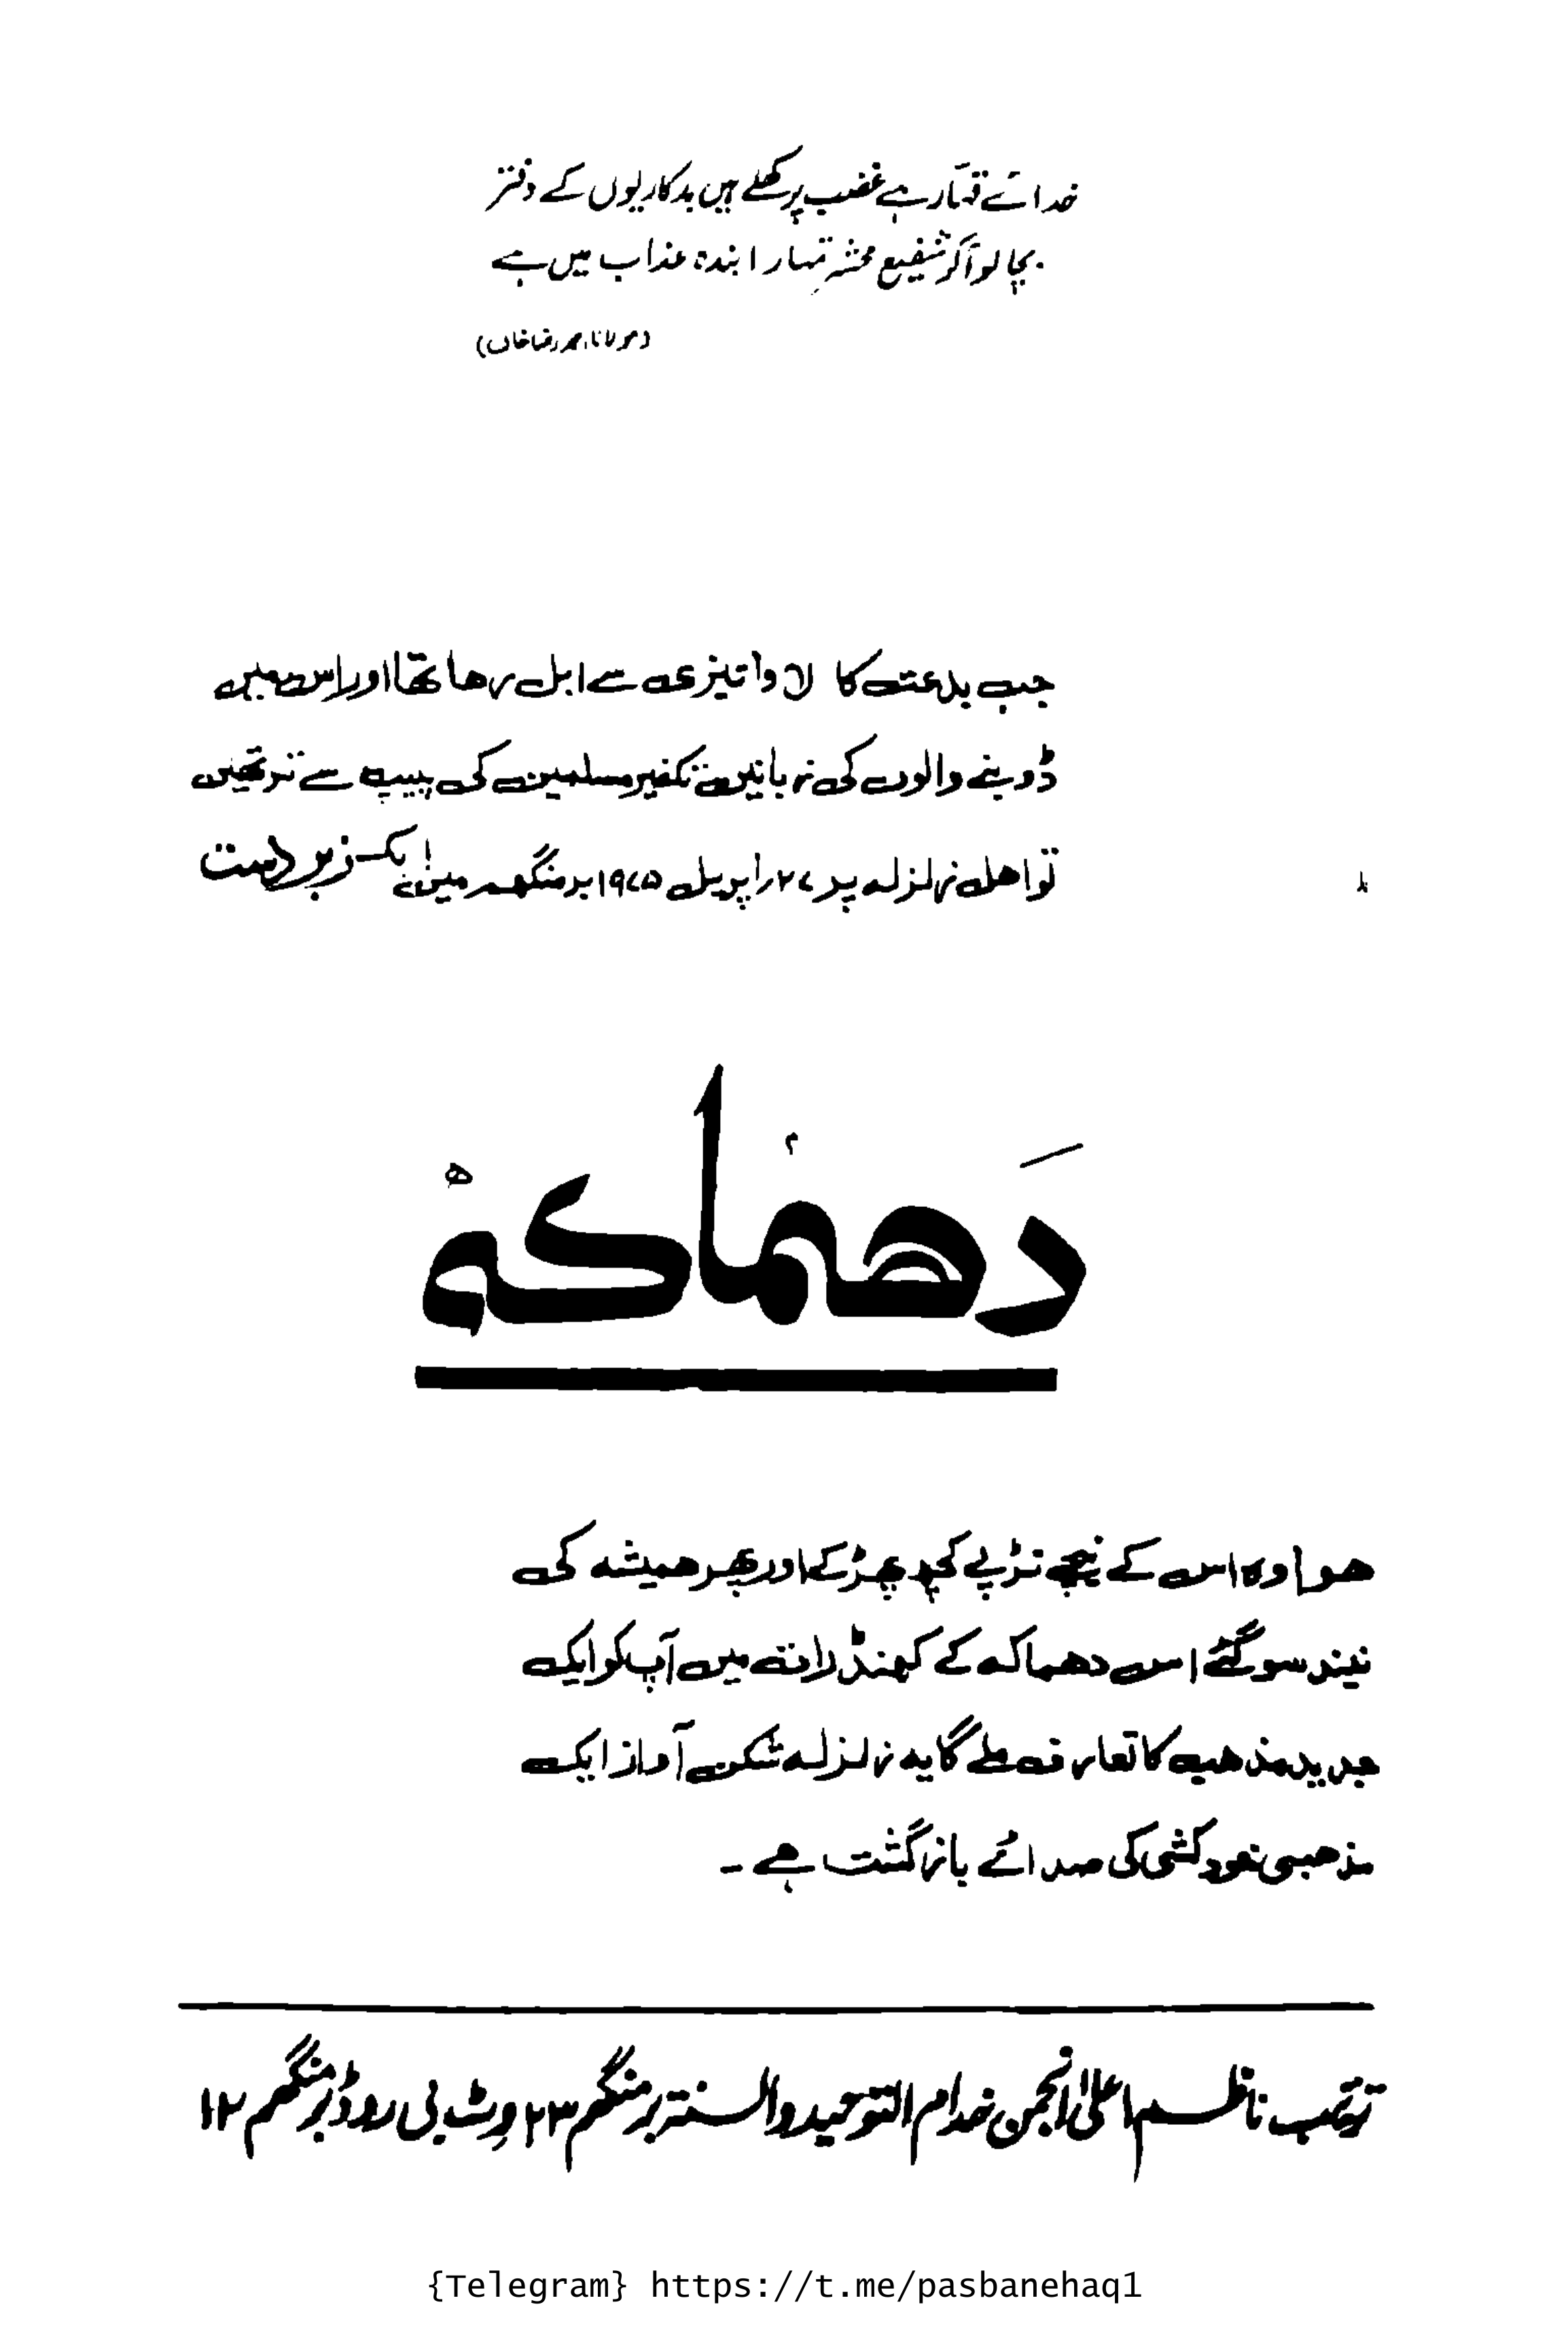 خدائے قہّار ہے غضب پر کھلے ہیں بدکاریوں کے دفتر
بچالو آ کر شفیعِ محشر تمہارا بندہ عذاب میں ہے
(مولانا احمد رضا خاں)
جب بدعت کا لاوا تیزی سے ابل رہا تھا اور اس میں
ڈوبنے والوں کی زبانیں تکفیر مسلمین کی پیپ سے تر تھیں
تو اہل زلزلہ پر ۲۷ اپریل ۱۹۷۵ برمنگھم میں ایک زبردست
دَھماکہ
ہوا وہ اس کے نیچے تڑپے کچھ پھڑکے اور پھر ہمیشہ کی
نیند سو گئے اس دھماکہ کے کھنڈرات میں آپ کو ایک
جدید مذہب کا تعارف ملے گا یہ زلزلہ شکن آواز ایک
مذہبی خودکشی کی صدائے بازگشت ہے ۔
ترتیب ناظم اعلیٰ انجمن خدام التوحید والسنۃ برمنگھم ۲۳ وِٹ بی روڈ برمنگھم ۱۲
{Telegram} https://t.me/pasbanehaq1